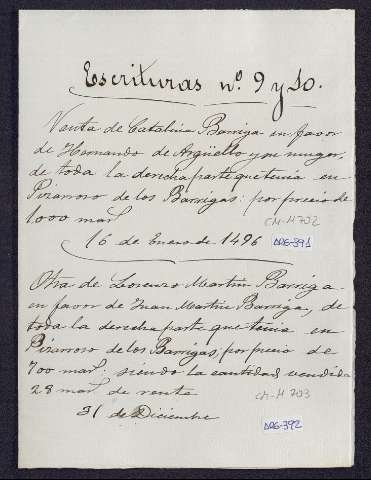 Escrituras nº. 9 y 10.
Venta de Catalina Barriga en favor
de Hernando de Argüello y su muger,
de toda la derecha parte que tenia en
Pizarroso de los Barrigas: por precio de
1000 mar.s CM-M 702
16 de Enero de 1496 ARG-391
Otra de Lorenzo Martin Barriga
en favor de Juan Martin Barriga, de
toda la derecha parte que tenia en
Pizarroso de los Barrigas, por precio de
700 mar.s: siendo la cantidad vendida
28 mar.s de renta CM-M 703
31 de Diciembre ARG-392